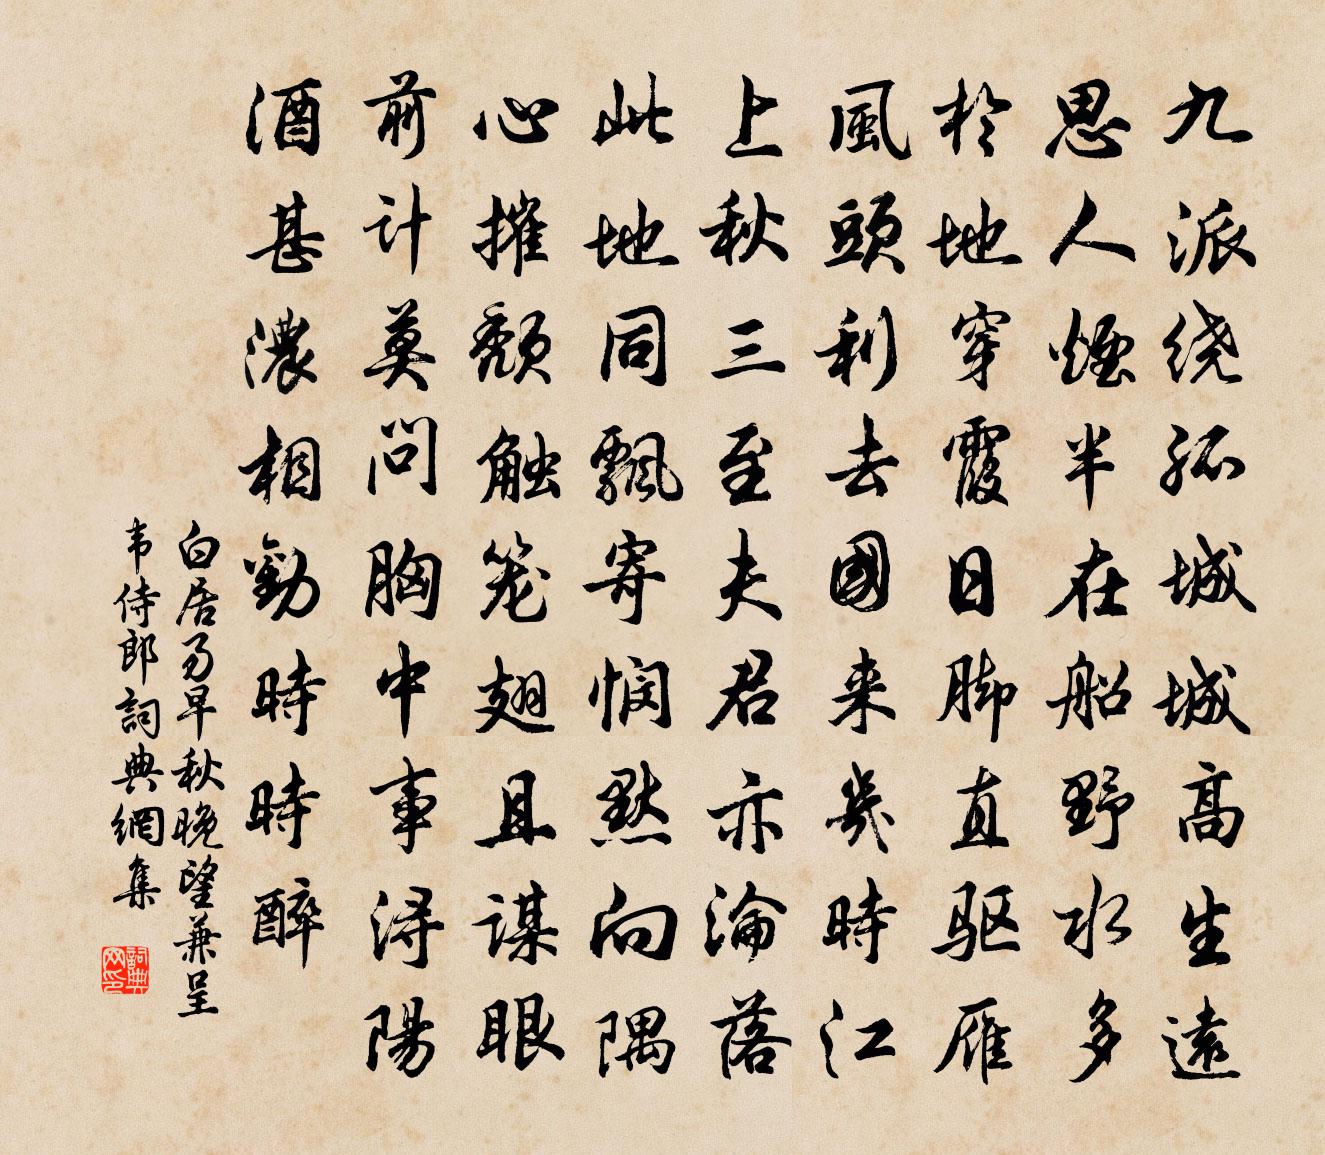 九派绕孤城城高生遠
思人煙半在船野水多
於地穿霞日脚直驱雁
風頭利去國来幾時江
上秋三至夫君亦淪落
此地同飄寄悯默向隅
心摧颓触笼翅且谋眼
前计莫问胸中事浔陽
酒甚濃相勸時時醉
白居易早秋晚望兼呈
韦侍郎詞典網集
詞典网印